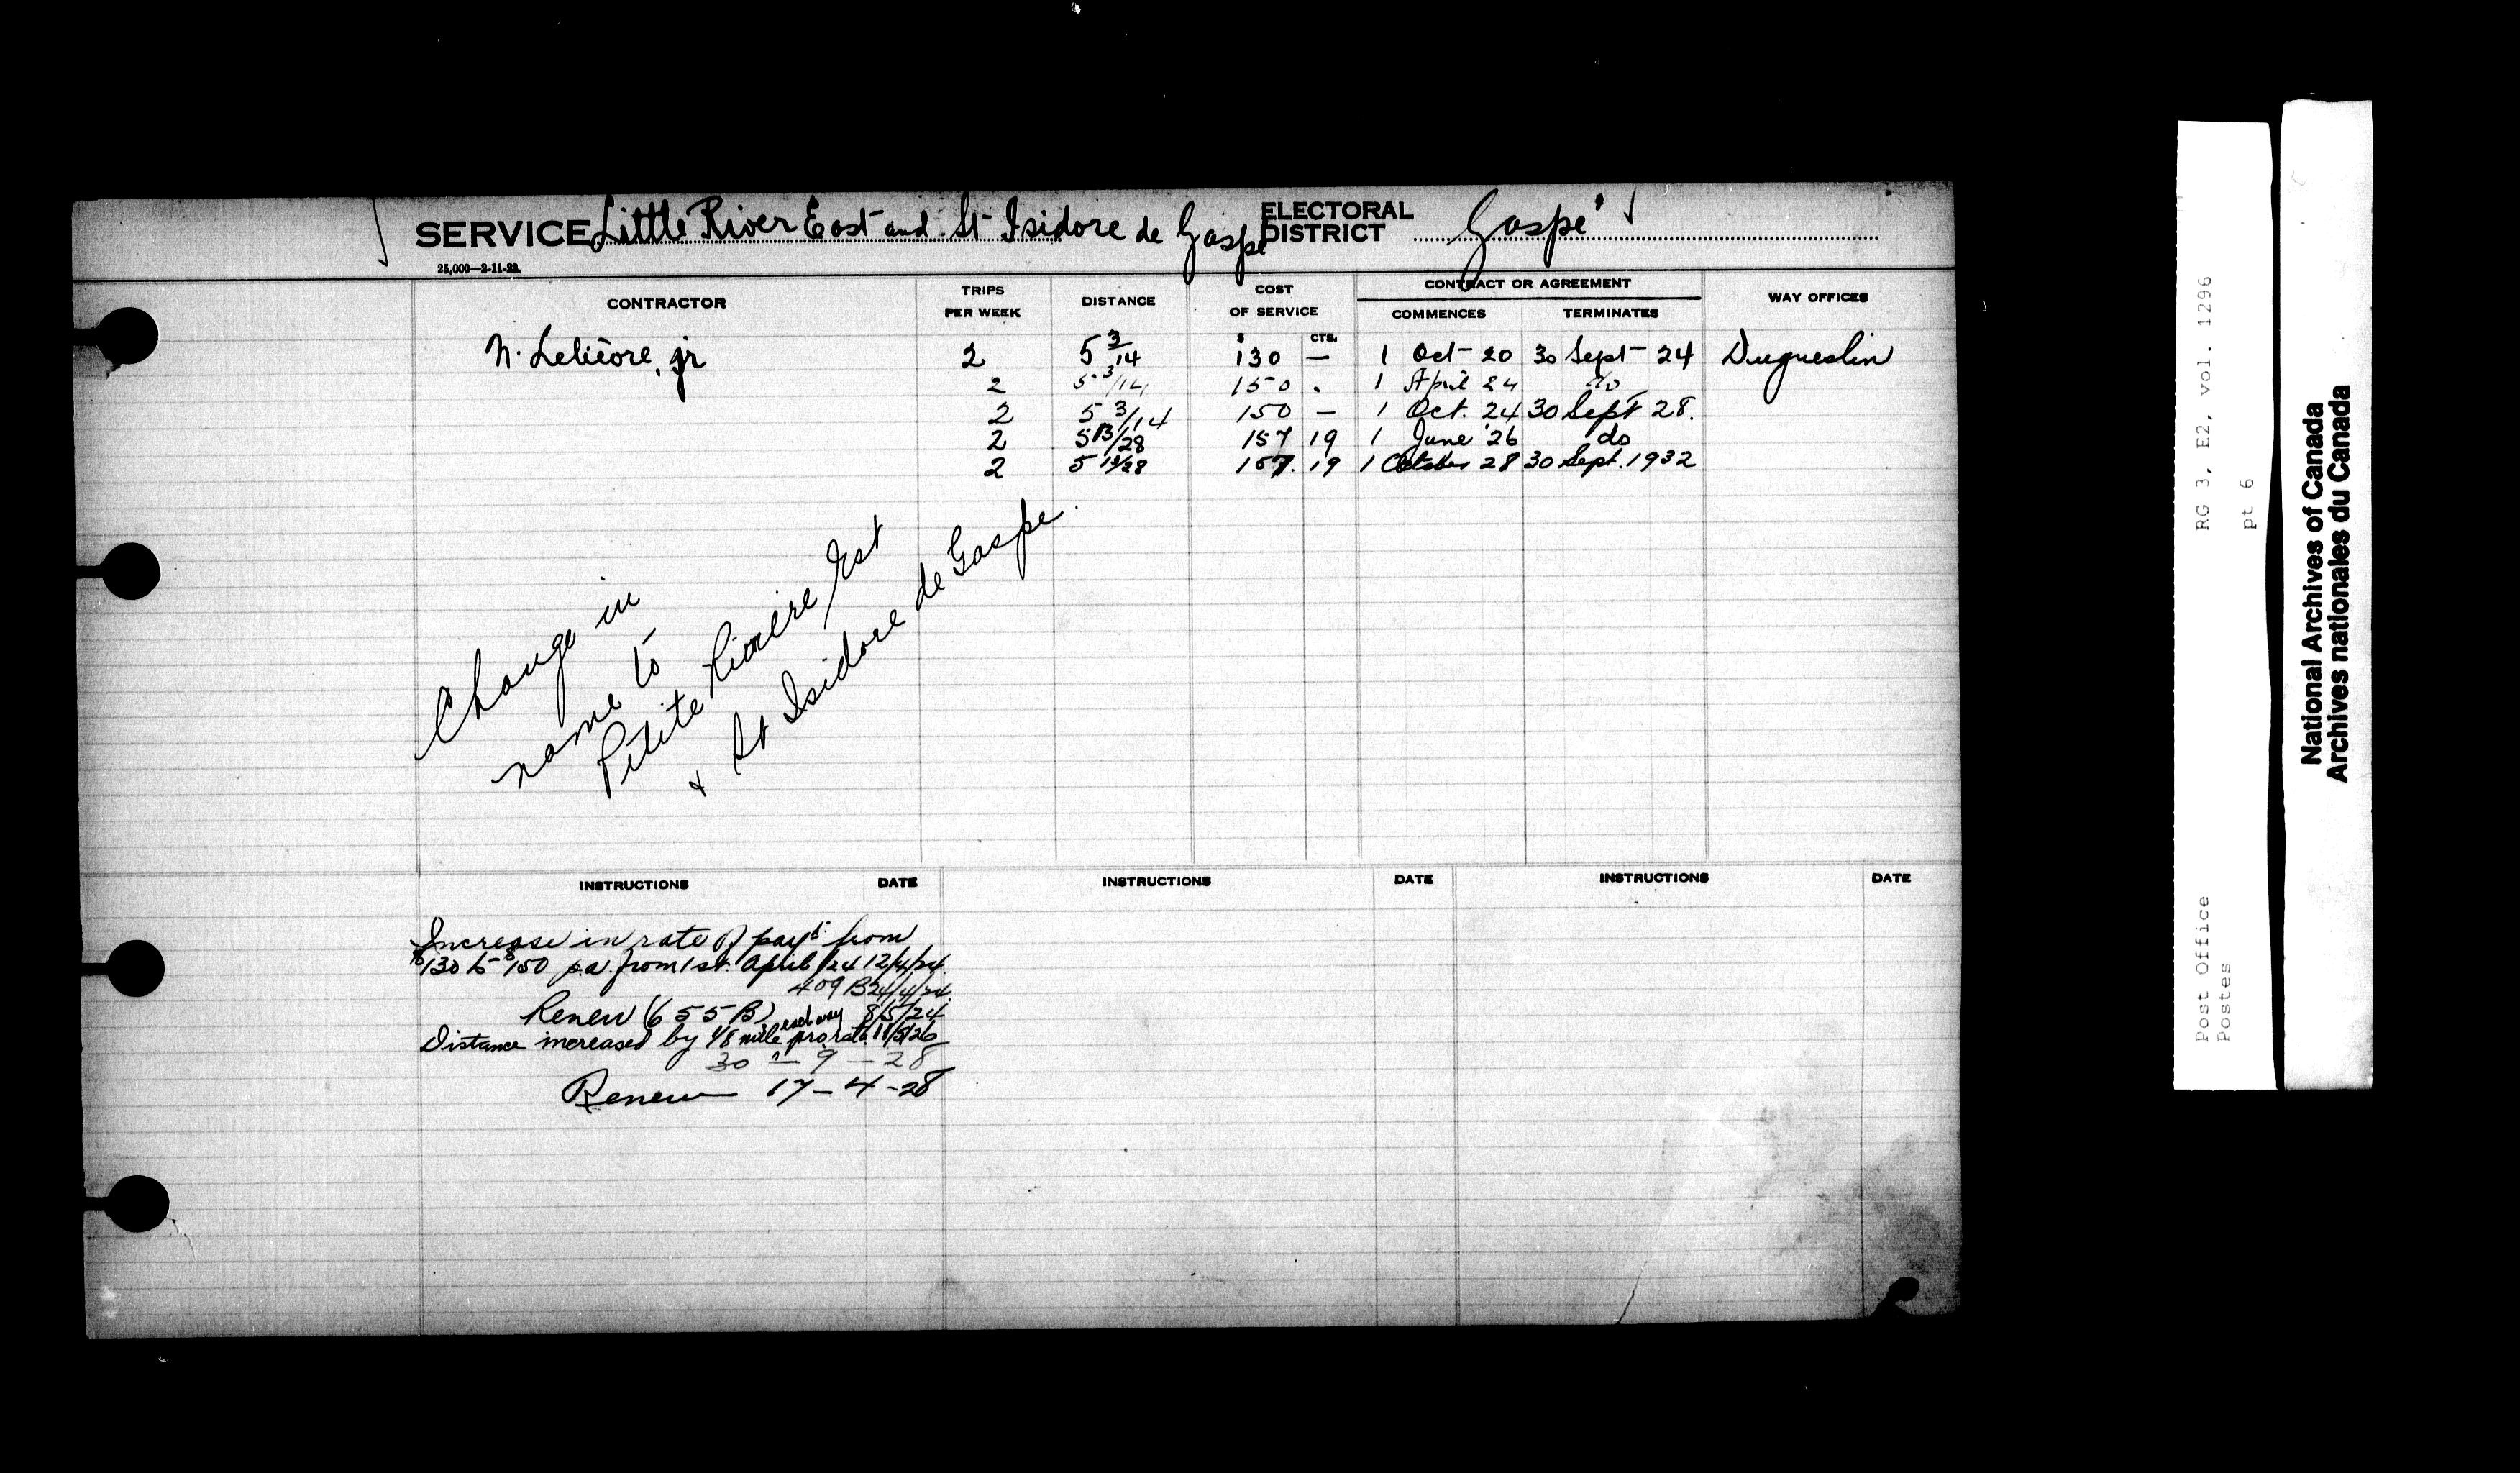 SERVICE Little River East and St Isidore de Gaspé ELECTORAL DISTRICT Gaspé
25,000—2-11-23.
CONTRACTOR TRIPS PER WEEK DISTANCE COST OF SERVICE CONTRACT OR AGREEMENT WAY OFFICES
COMMENCES TERMINATES
$ CTS.
N. Leliévre, jr 2 5 3/14 130 — 1 Oct- 20 30 Sept- 24 Duguesclin
2 5 3/14 150 . 1 April 24 do
2 5 3/14 150 — 1 Oct. 24 30 Sept 28.
2 5 13/28 157 19 1 June '26 do
2 5 13/28 157. 19 1 October 28 30 Sept. 1932
Change in
name to
Petite Rivière Est
& St Isidore de Gaspe.
INSTRUCTIONS DATE INSTRUCTIONS DATE INSTRUCTIONS DATE
Increase in rate of payt. from
$130 to $150 p.a. from 1st. April /24 12/4/24
409 B 24/4/24.
Renew (655 B) 8/5/24
Distance increased by 1/8 mile each way pro rata 11/5/26
30 - 9 - 28
Renew 17 - 4 - 28
RG 3, E2, vol. 1296
pt 6
Post Office
Postes
National Archives of Canada
Archives nationales du Canada